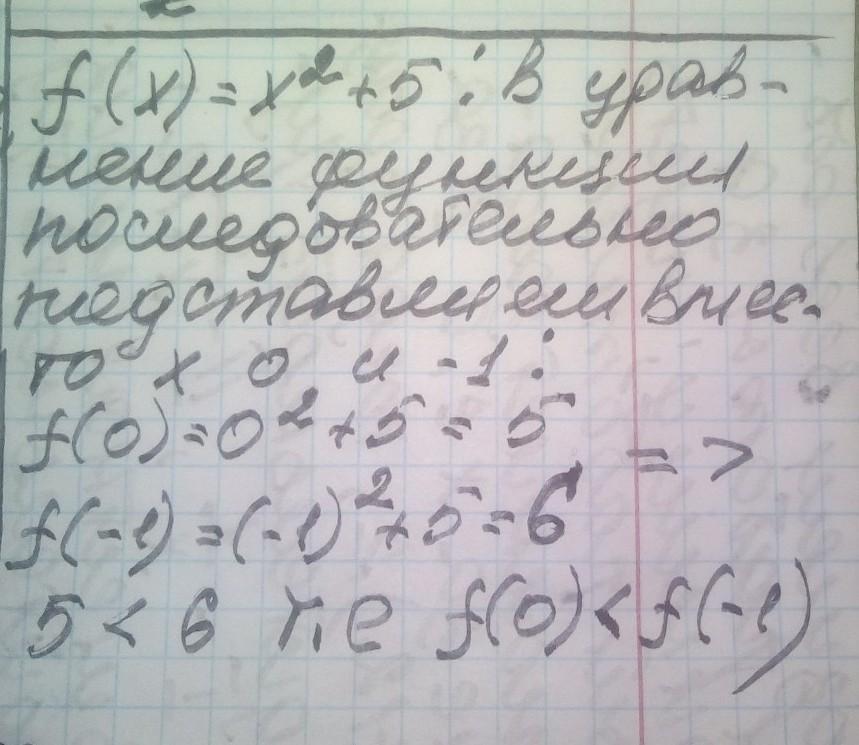 f(x) = x² + 5 : в урав-
нение функции
последовательно
подставляем вмес-
то x 0 и -1 :
f(0) = 0² + 5 = 5
=>
f(-1) = (-1)² + 5 = 6
5 < 6 т.е f(0) < f(-1)